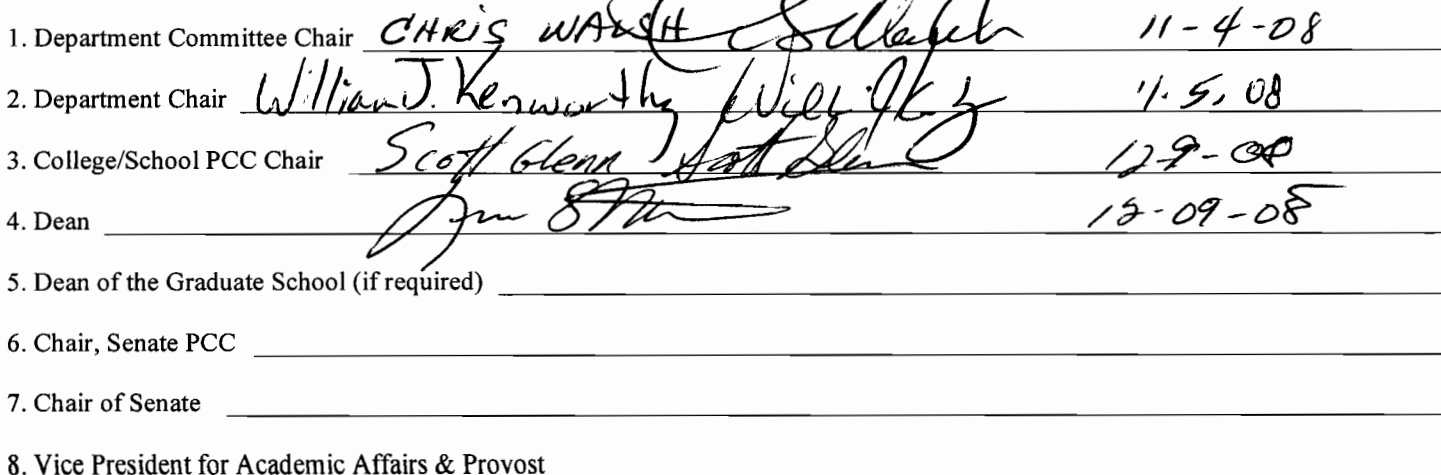 1. Department Committee Chair CHRIS WALSH 11-4-08
2. Department Chair William J. Kenworthy 11.5.08
3. College/School PCC Chair Scott Glenn Scott Glenn 12-9-08
4. Dean 12-09-08
5. Dean of the Graduate School (if required)
6. Chair, Senate PCC
7. Chair of Senate
8. Vice President for Academic Affairs & Provost